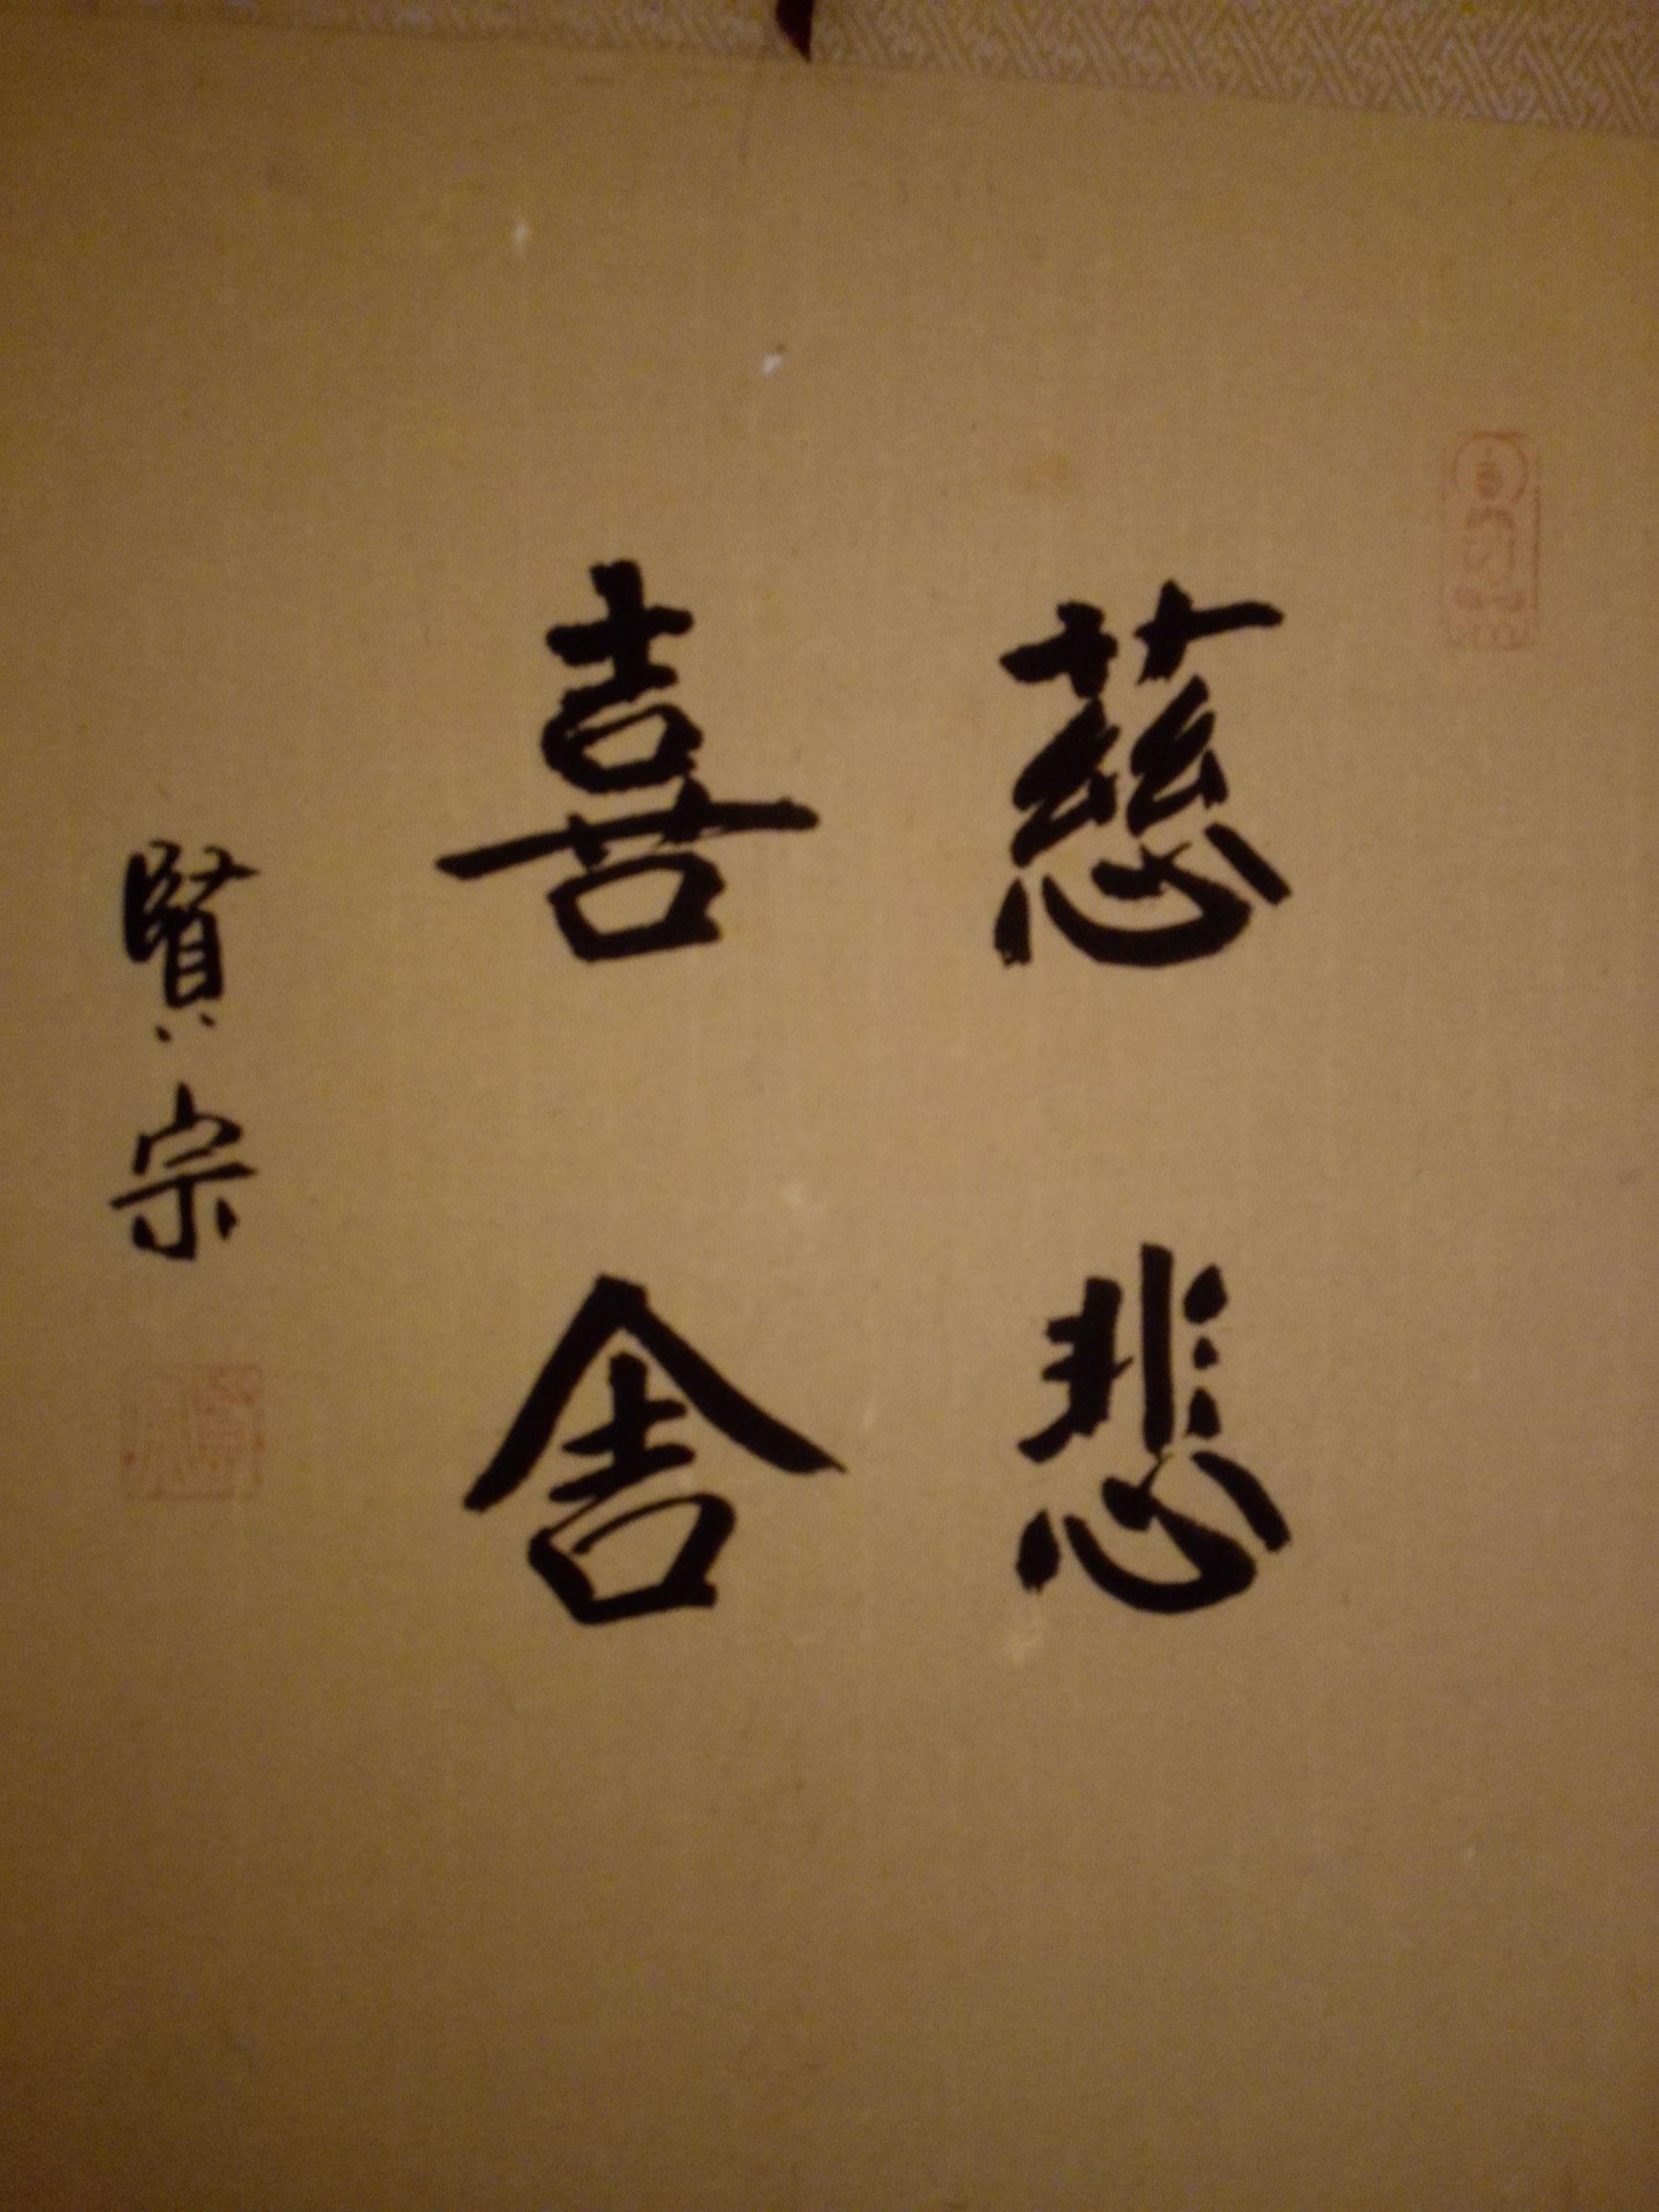 慈悲
喜舎
賢宗